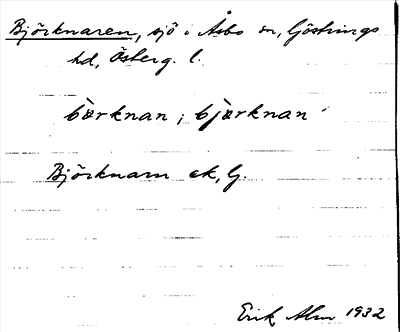 Björknaren, sjö i Åsbo sn, Göstrings
hd, Österg. l.
bærknan; bjærknan
Björknarn ek, G.
Erik Alm 1932